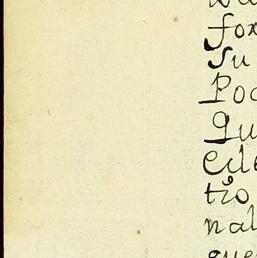 for
Su
Poc
Qu
Cile
tio
nal
que